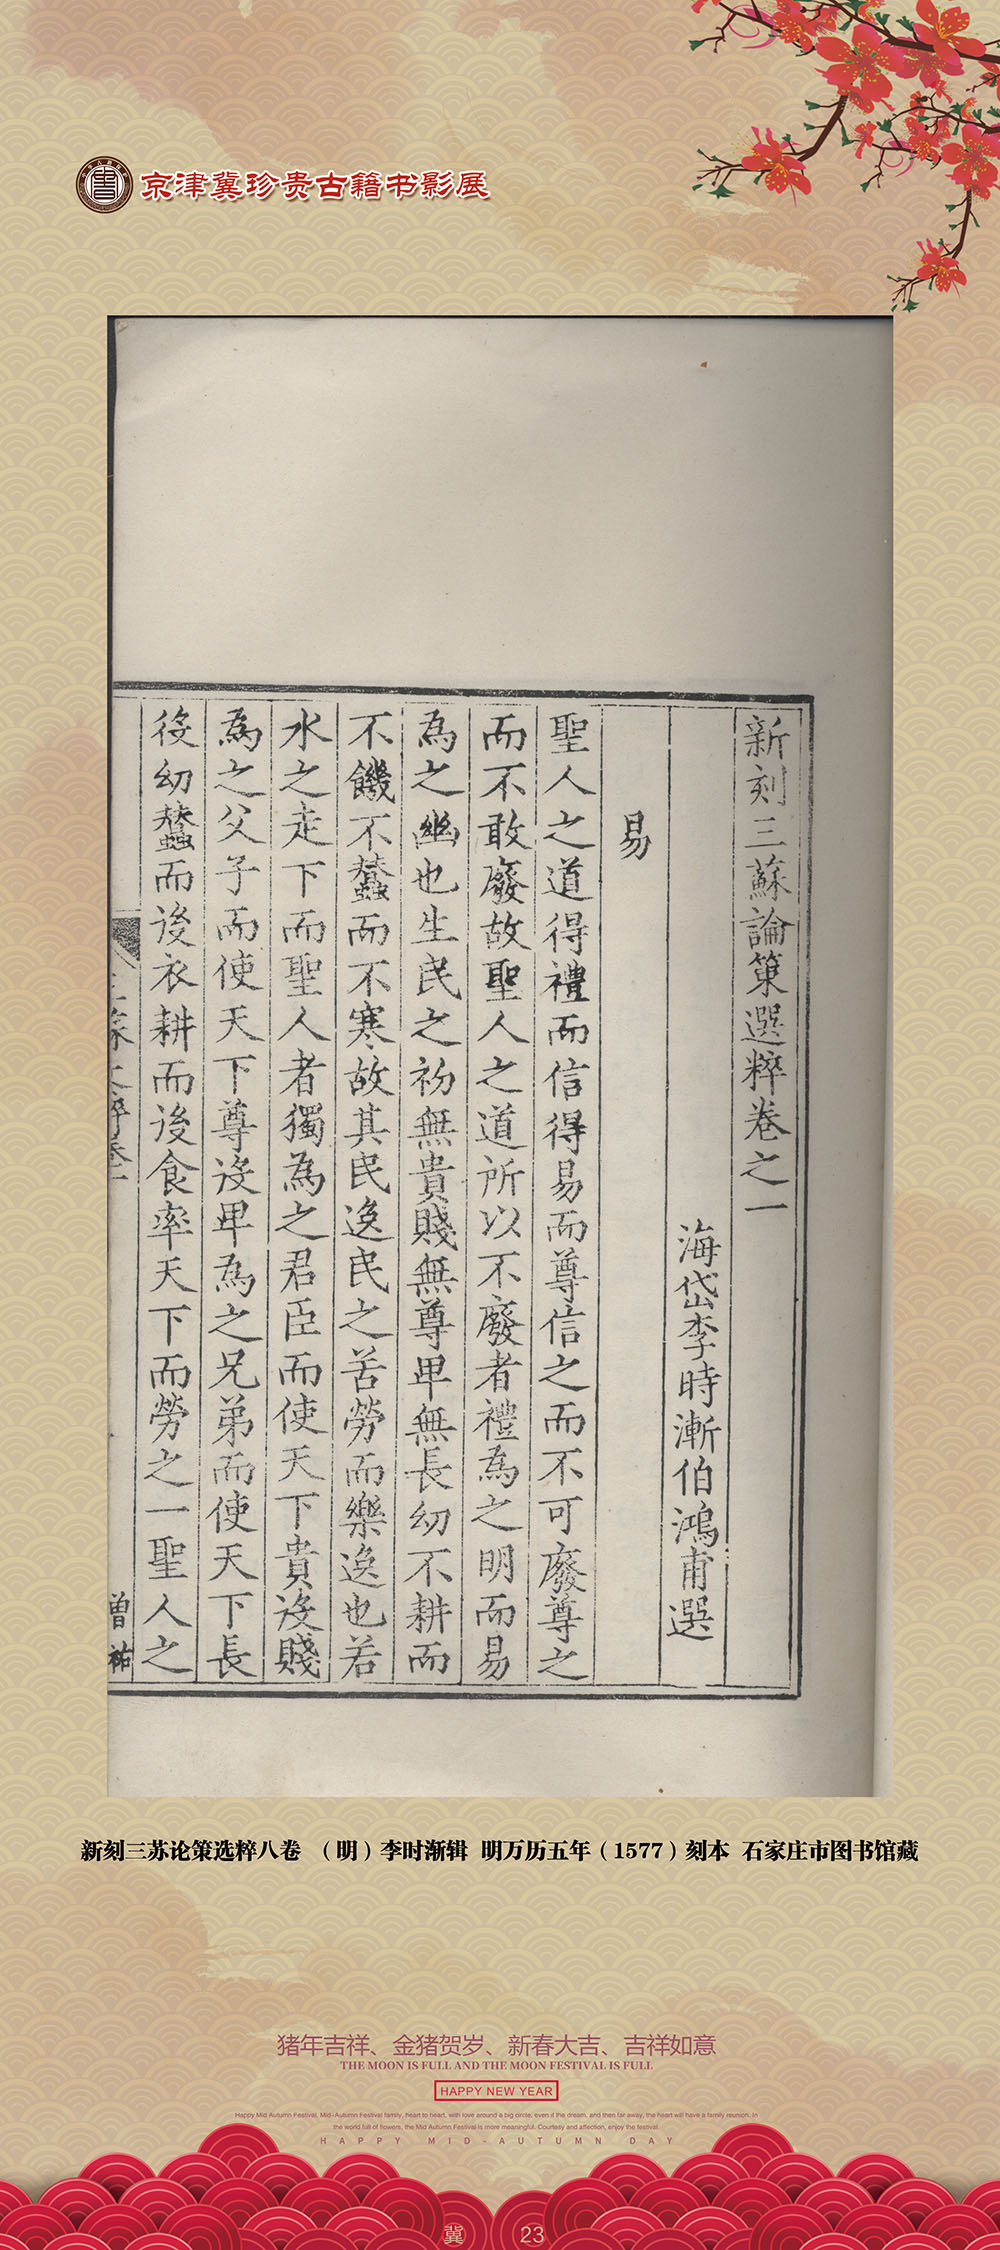 京津冀珍贵古籍书影展
新刻三蘇論策選粹卷之一
海岱李時漸伯鴻甫選
易
聖人之道得禮而信得易而尊信之而不可廢尊之
而不敢廢故聖人之道所以不廢者禮為之明而易
為之幽也生民之初無貴賤無尊卑無長幼不耕而
不饑不蠶而不寒故其民逸民之苦勞而樂逸也若
水之走下而聖人者獨為之君臣而使天下貴役賤
為之父子而使天下尊役卑為之兄弟而使天下長
役幼蠶而後衣耕而後食率天下而勞之一聖人之
曾祐
新刻三苏论策选粹八卷 （明）李时渐辑 明万历五年（1577）刻本 石家庄市图书馆藏
猪年吉祥、金猪贺岁、新春大吉、吉祥如意
THE MOON IS FULL AND THE MOON FESTIVAL IS FULL
HAPPY NEW YEAR
Happy Mid Autumn Festival, Mid-Autumn Festival family, heart to heart, with love around a big circle, even if the dream, and then far away, the heart will have a family reunion. In
the world full of flowers, the Mid Autumn Festival is more meaningful. Courtesy and affection, enjoy the festival.
HAPPY MID-AUTUMN DAY
冀 23